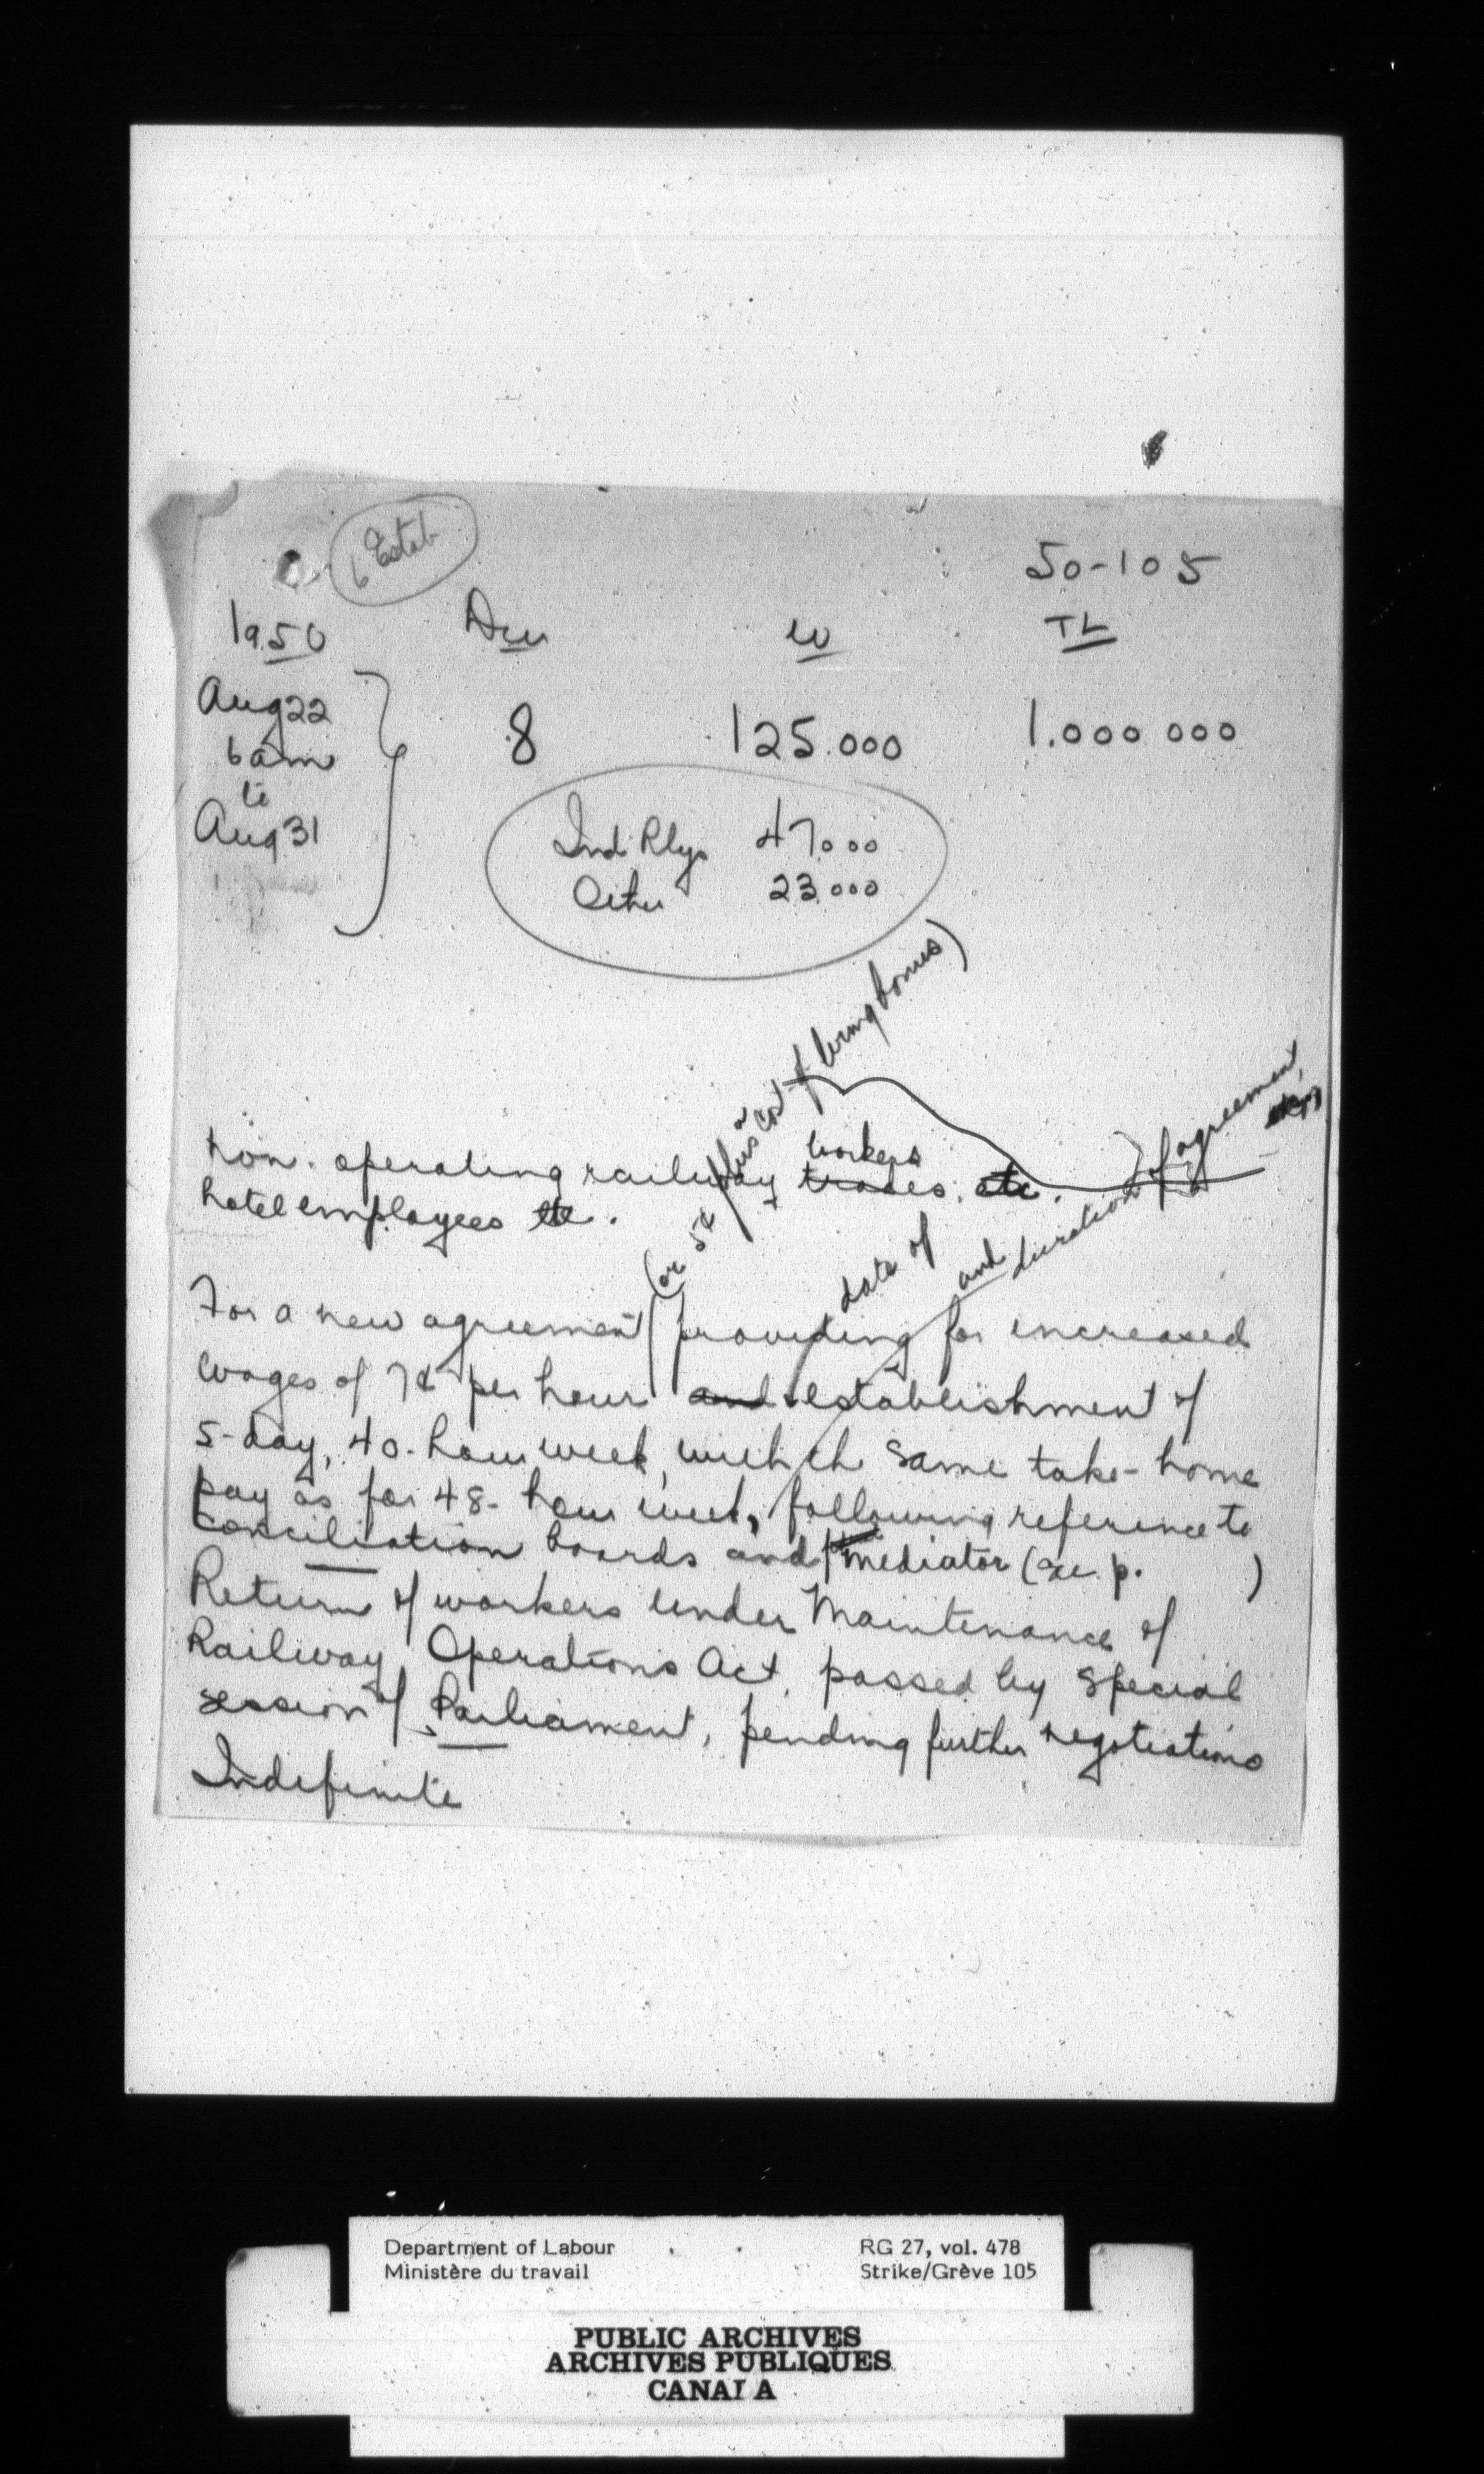 6 Estab
50-105
1950 Dur W TL
Aug 22
6 am
to
Aug 31
8 125.000 1.000 000
Ind. Rlys 47.000
Other 23.000
non-operating railway trades, etc. workers +
hotel employees etc.
(or 5¢ plus a cost of living bonus)
date of and duration of agreement,
For a new agreement providing for increased
wages of 7¢ per hour and establishment of
5-day, 40-hour week, with the same take-home
pay as for 48-hour week, following reference to
conciliation boards and mediator (see p. )
Return of workers under Maintenance of
Railway Operations Act, passed by special
session of Parliament, pending further negotiations
Indefinite
Department of Labour
Ministère du travail
RG 27, vol. 478
Strike/Grève 105
PUBLIC ARCHIVES
ARCHIVES PUBLIQUES
CANADA